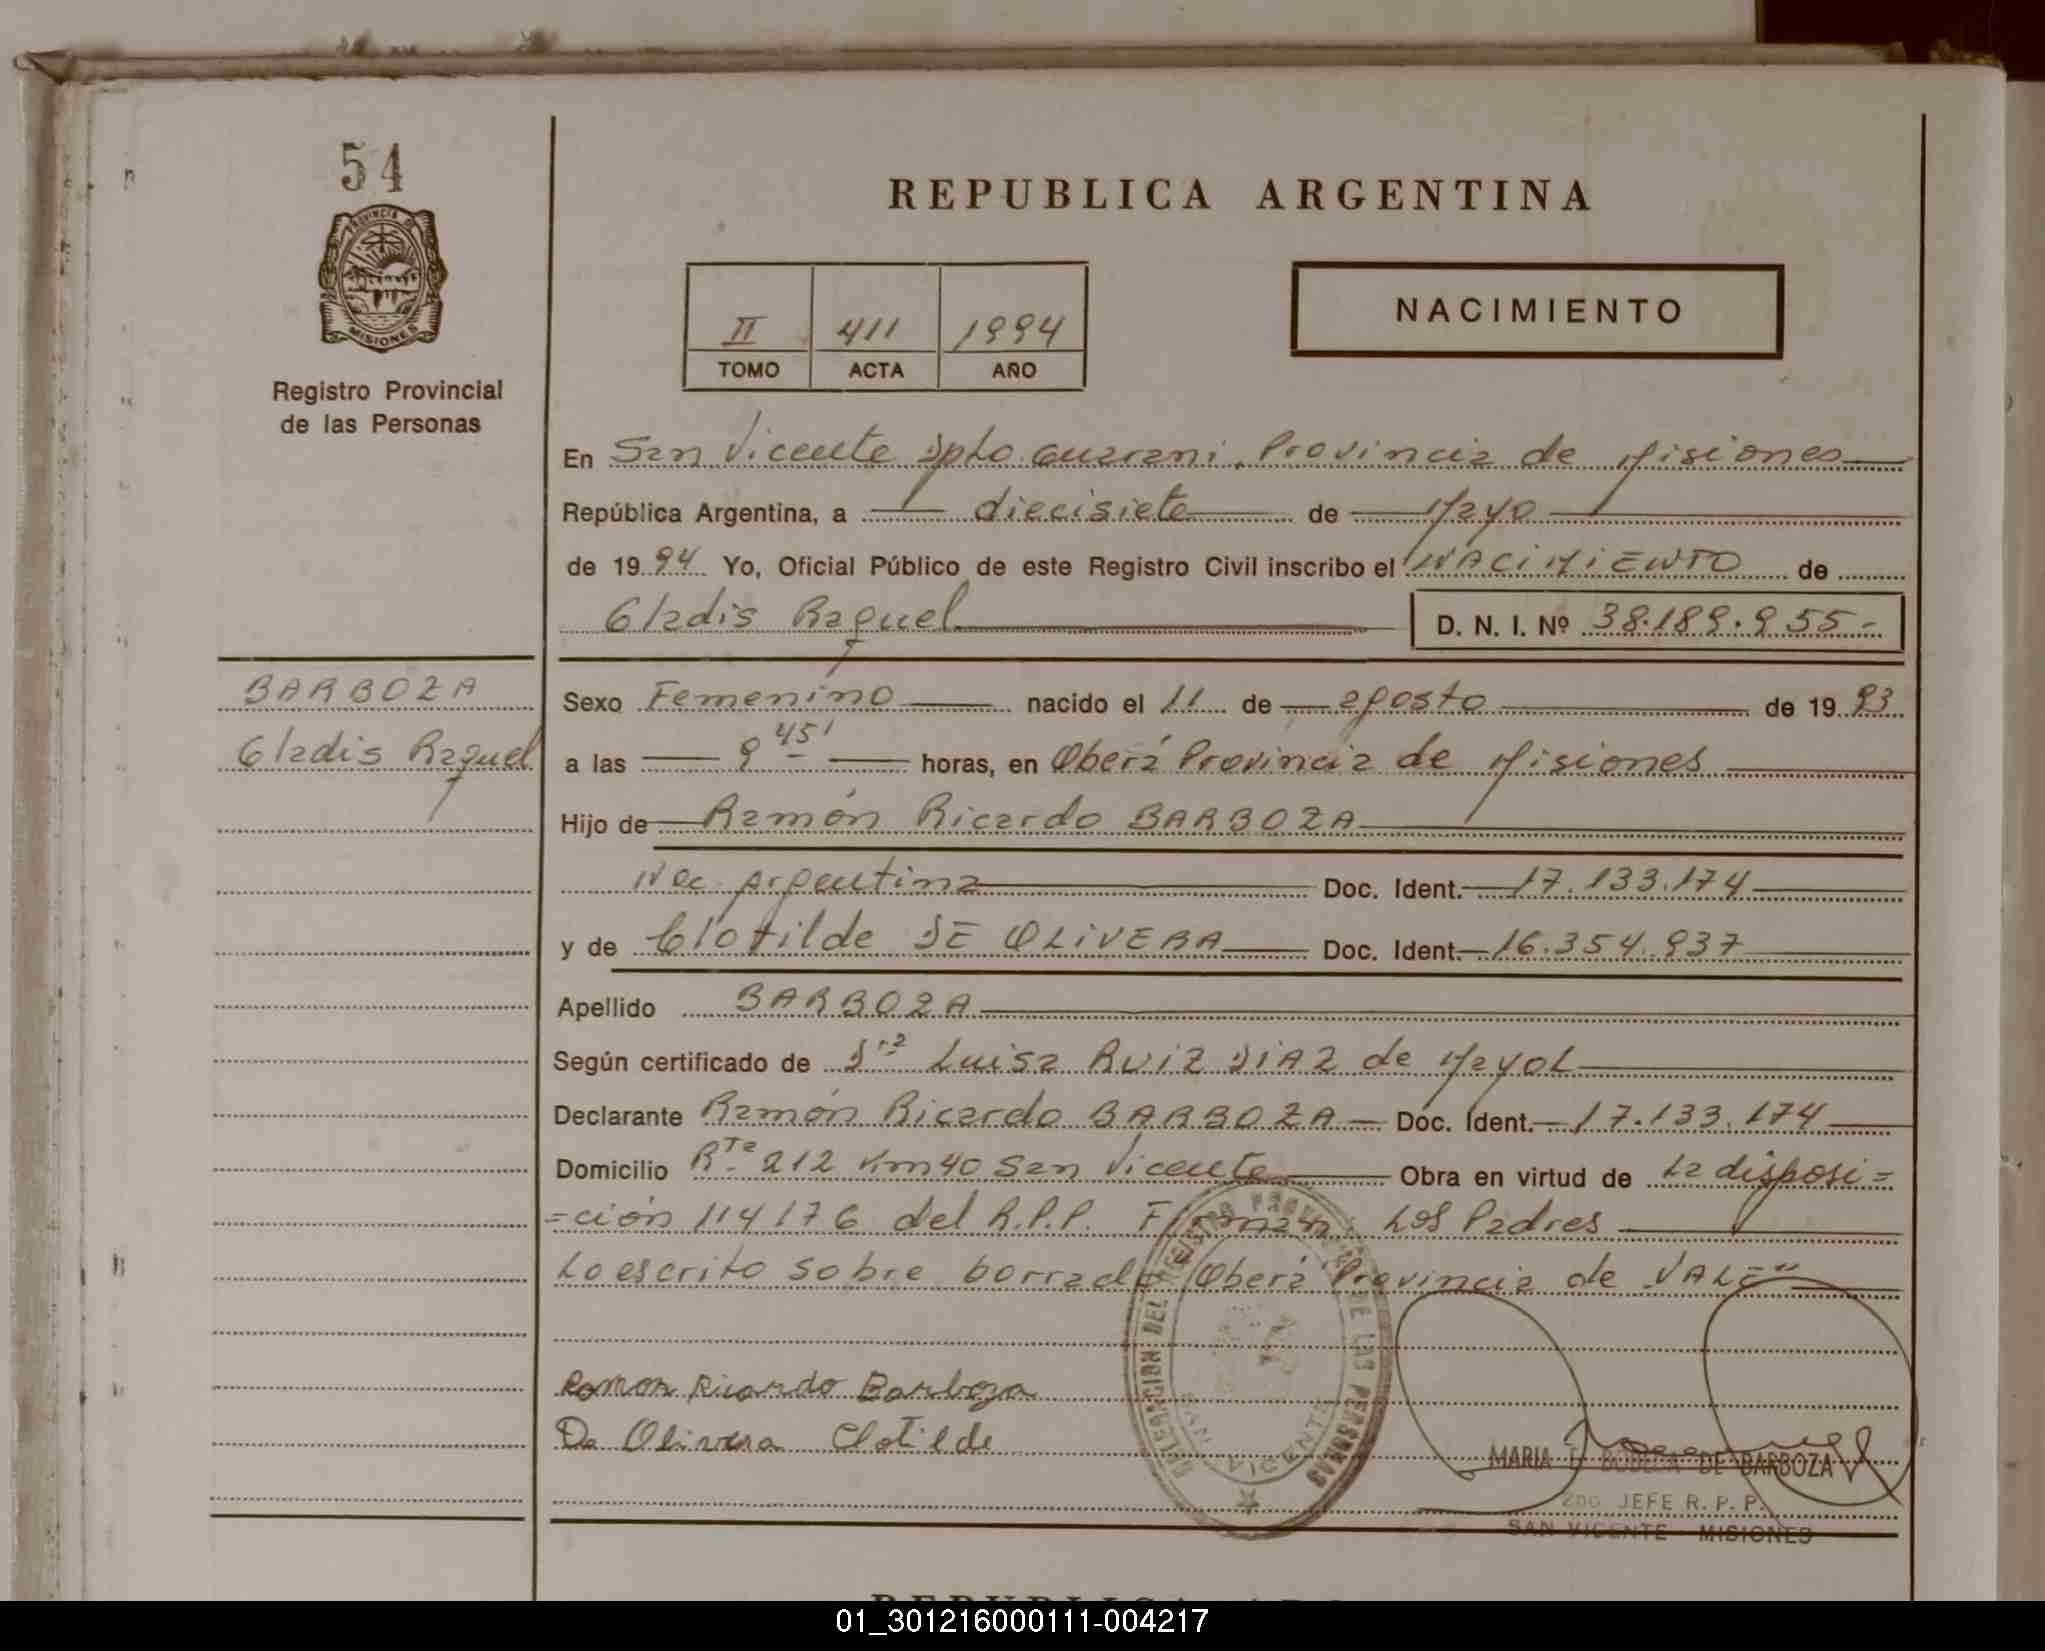 54
PROVINCIA DE
MISIONES
Registro Provincial
de las Personas
REPUBLICA ARGENTINA
II 411 1994
TOMO ACTA AÑO
NACIMIENTO
En San Vicente Dpto. Guarani, Provincia de Misiones
República Argentina, a diecisiete de Mayo
de 1994 Yo, Oficial Público de este Registro Civil inscribo el NACIMIENTO de
Gladis Raquel D. N. I. Nº 38.189.955.-
BARBOZA
Gladis Raquel
Sexo Femenino nacido el 11 de agosto de 1993
a las 9 45' horas, en Oberá Provincia de Misiones
Hijo de Ramón Ricardo BARBOZA
Nac. Argentina Doc. Ident. 17.133.174
y de Clotilde DE OLIVERA Doc. Ident. 16.354.937
Apellido BARBOZA
Según certificado de Dra Luisa RUIZ DIAZ de MayoL
Declarante Ramón Ricardo BARBOZA Doc. Ident. 17.133.174
Domicilio Rta 212 Km 40 San Vicente Obra en virtud de La disposi=
=ción 114/76 del R.P.P. Firman: Los Padres
Lo escrito sobre borrado Oberá Provincia de VALE"
Ramon Ricardo Barboza
De Olivera Clotilde
DELEGACION DEL REGISTRO PROVINCIAL DE LAS PERSONAS
SAN VICENTE
MARIA DE BARBOZA
2do. JEFE R. P. P.
SAN VICENTE MISIONES
01_301216000111-004217